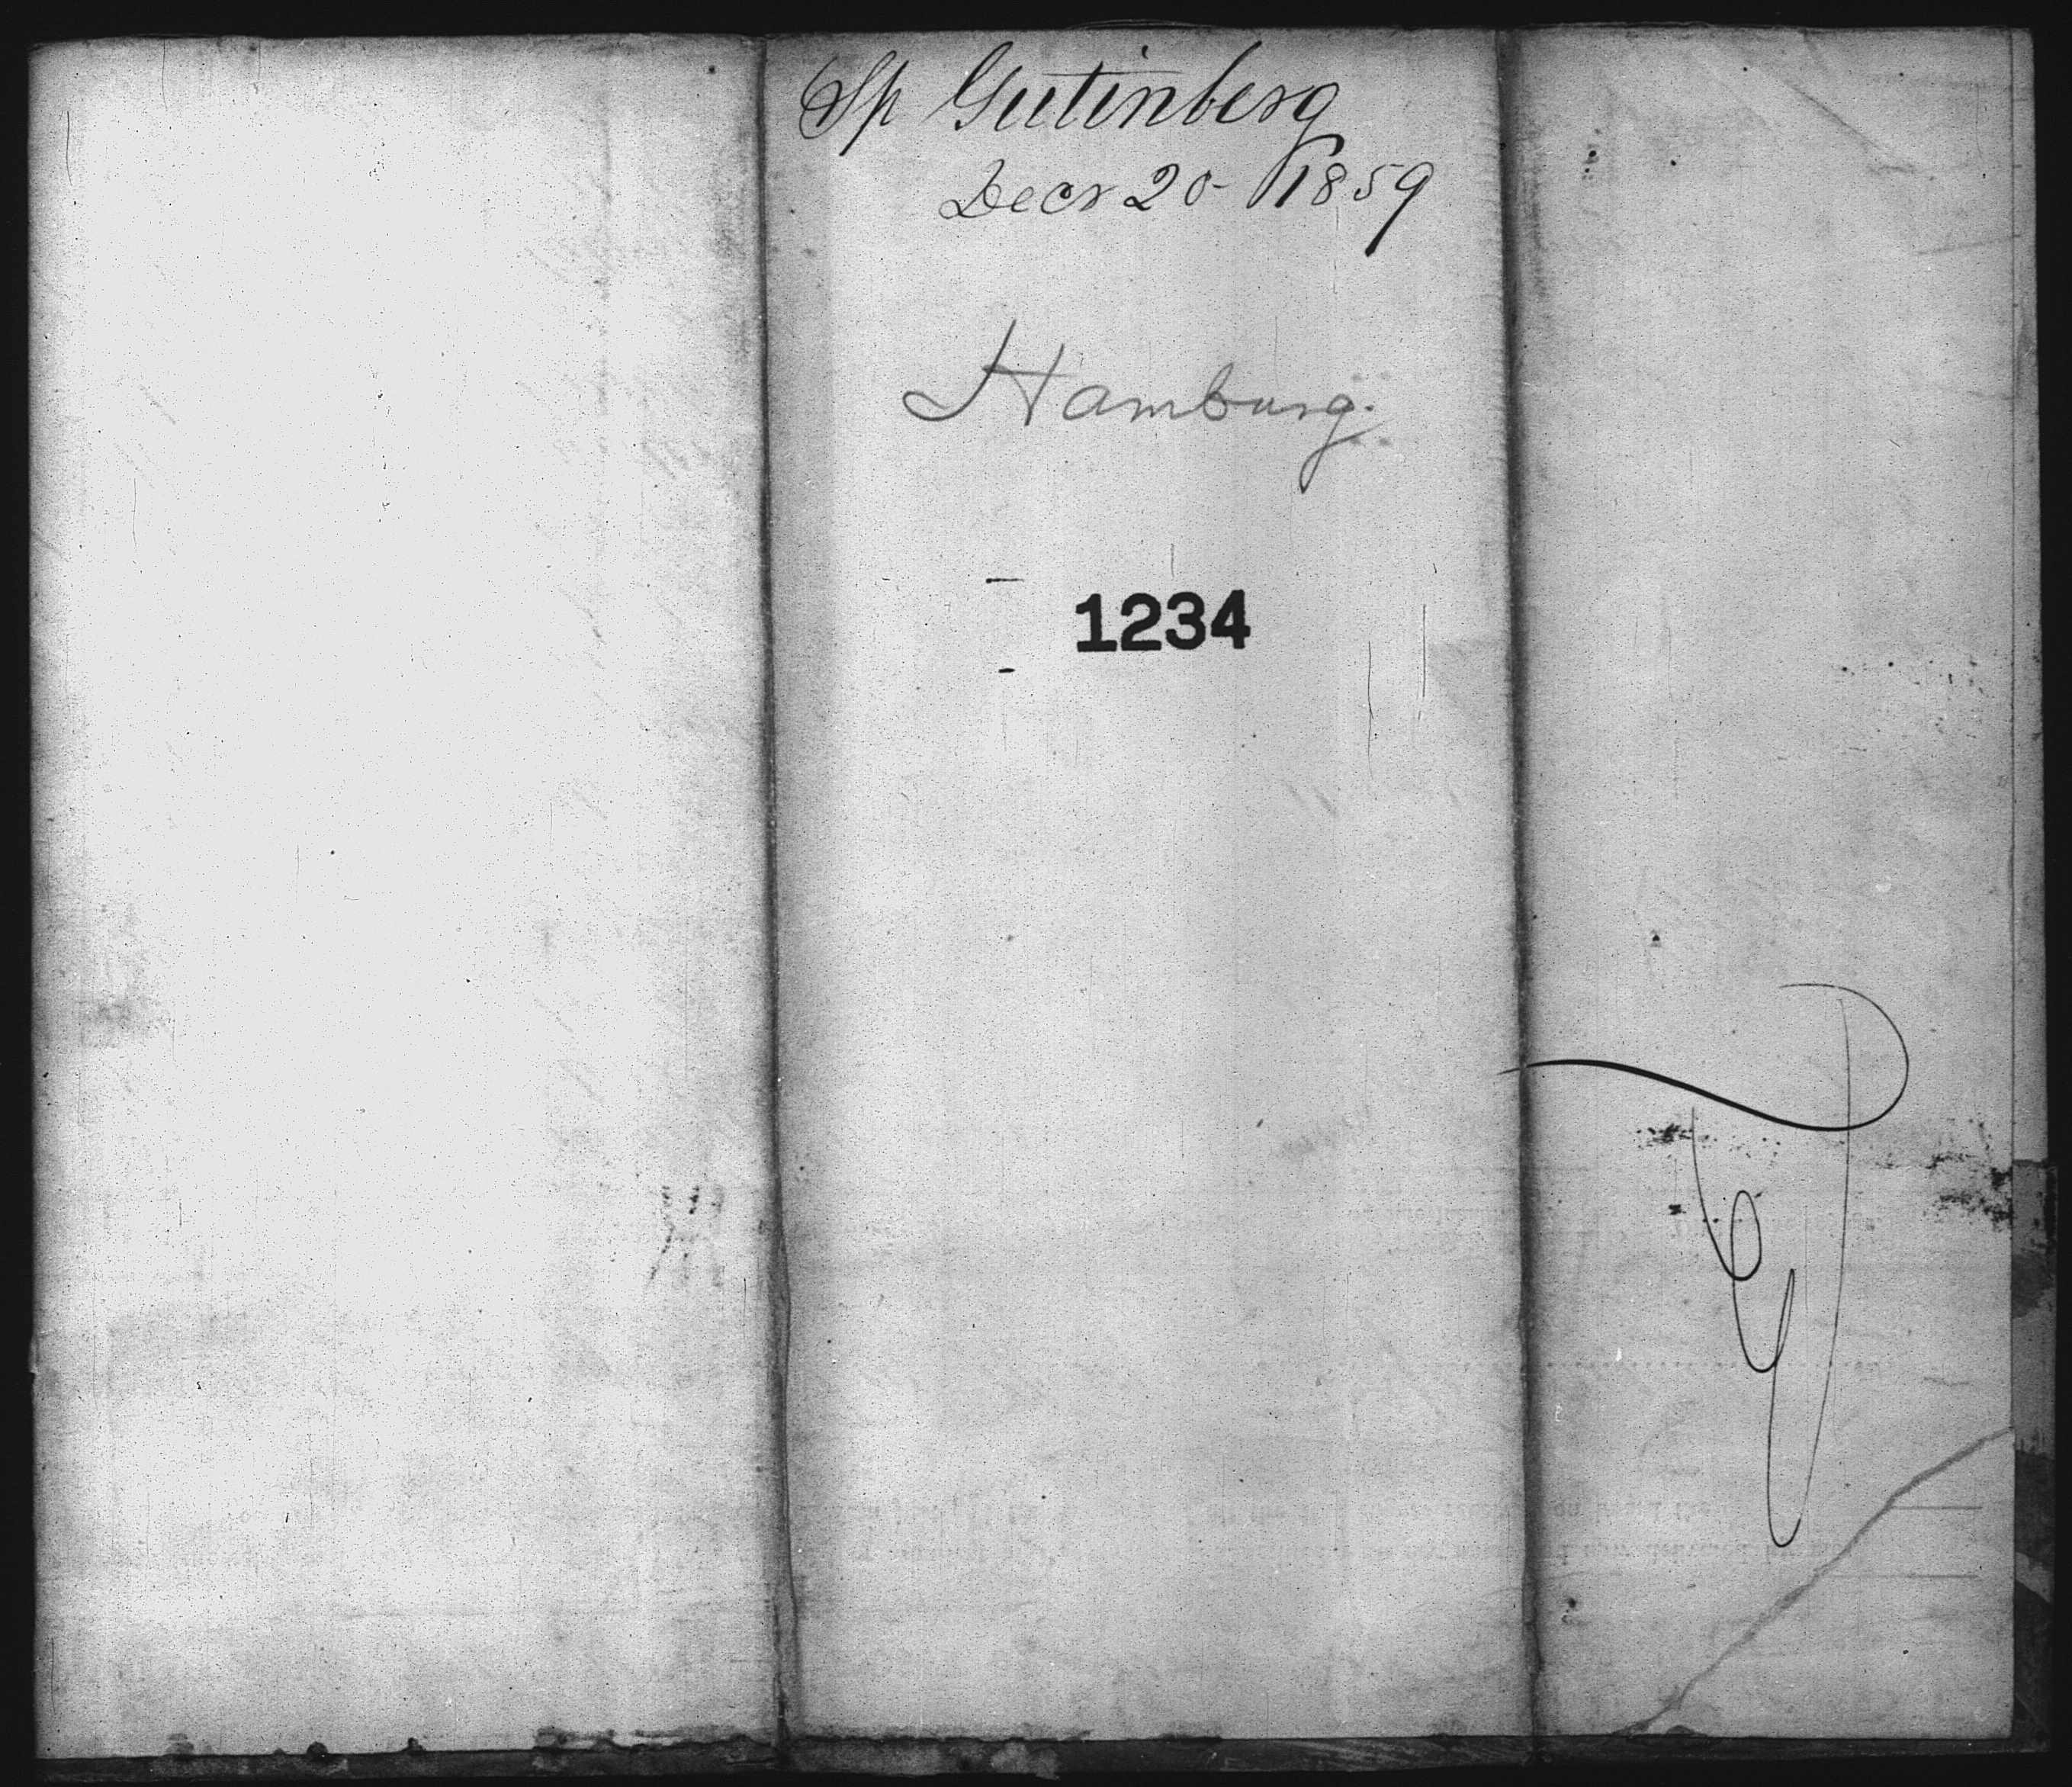 Sp Gutinberg
Decr 20- 1859
Hamburg
1234